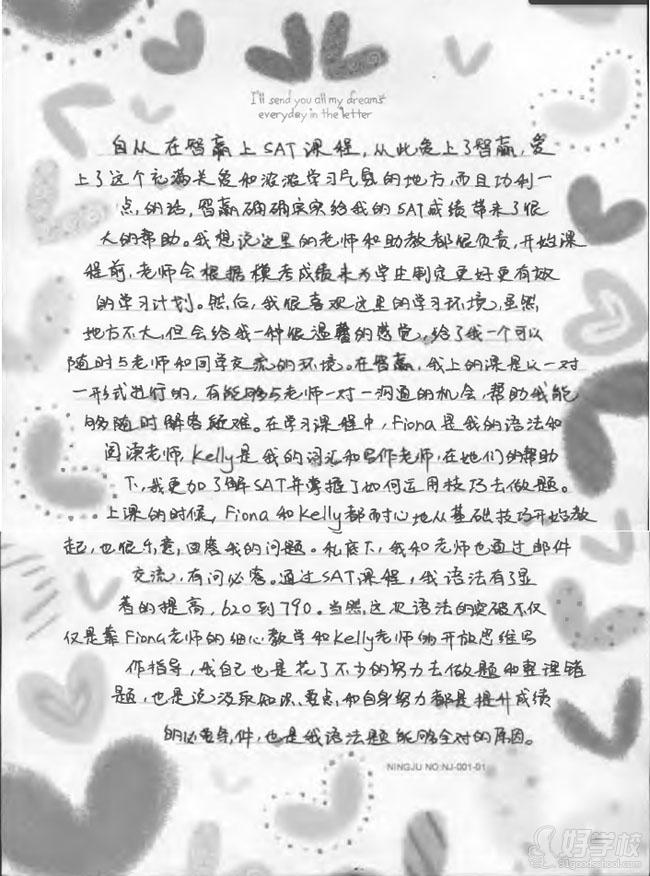 I'll send you all my dreams
everyday in the letter
自从在智赢上SAT课程，从此爱上了智赢，爱
上了这个充满关爱和浓浓学习气氛的地方，而且功利一
点的话，智赢确确实实给我的SAT成绩带来了很
大的帮助。我想说这里的老师和助教都很负责，开始课
程前，老师会根据模考成绩来为学生制定更好更有效
的学习计划。然后，我很喜欢这里的学习环境，虽然
地方不大，但会给我一种很温馨的感觉，给了我一个可以
随时与老师和同学交流的环境。在智赢，我上的课是以一对
一形式进行的，有能够与老师一对一沟通的机会，帮助我能
够随时解答疑难。在学习课程中，Fiona是我的语法和
阅读老师，Kelly是我的词汇和写作老师，在她们的帮助
下，我更加了解SAT并掌握了如何运用技巧去做题。
上课的时候，Fiona和Kelly都耐心地从基础技巧开始教
起，也很乐意回答我的问题。私底下，我和老师也通过邮件
交流，有问必答。通过SAT课程，我语法有了显
著的提高，620到790。当然，这次语法的突破不仅
仅是靠Fiona老师的细心教学和Kelly老师的开放思维写
作指导，我自己也是花了不少的努力去做题和整理错
题，也是说汲取知识、要点，和自身努力都是提升成绩
的必要条件，也是我语法题能够全对的原因。
NINGJU NO:NJ-001-01
好学校
91goodschool.com